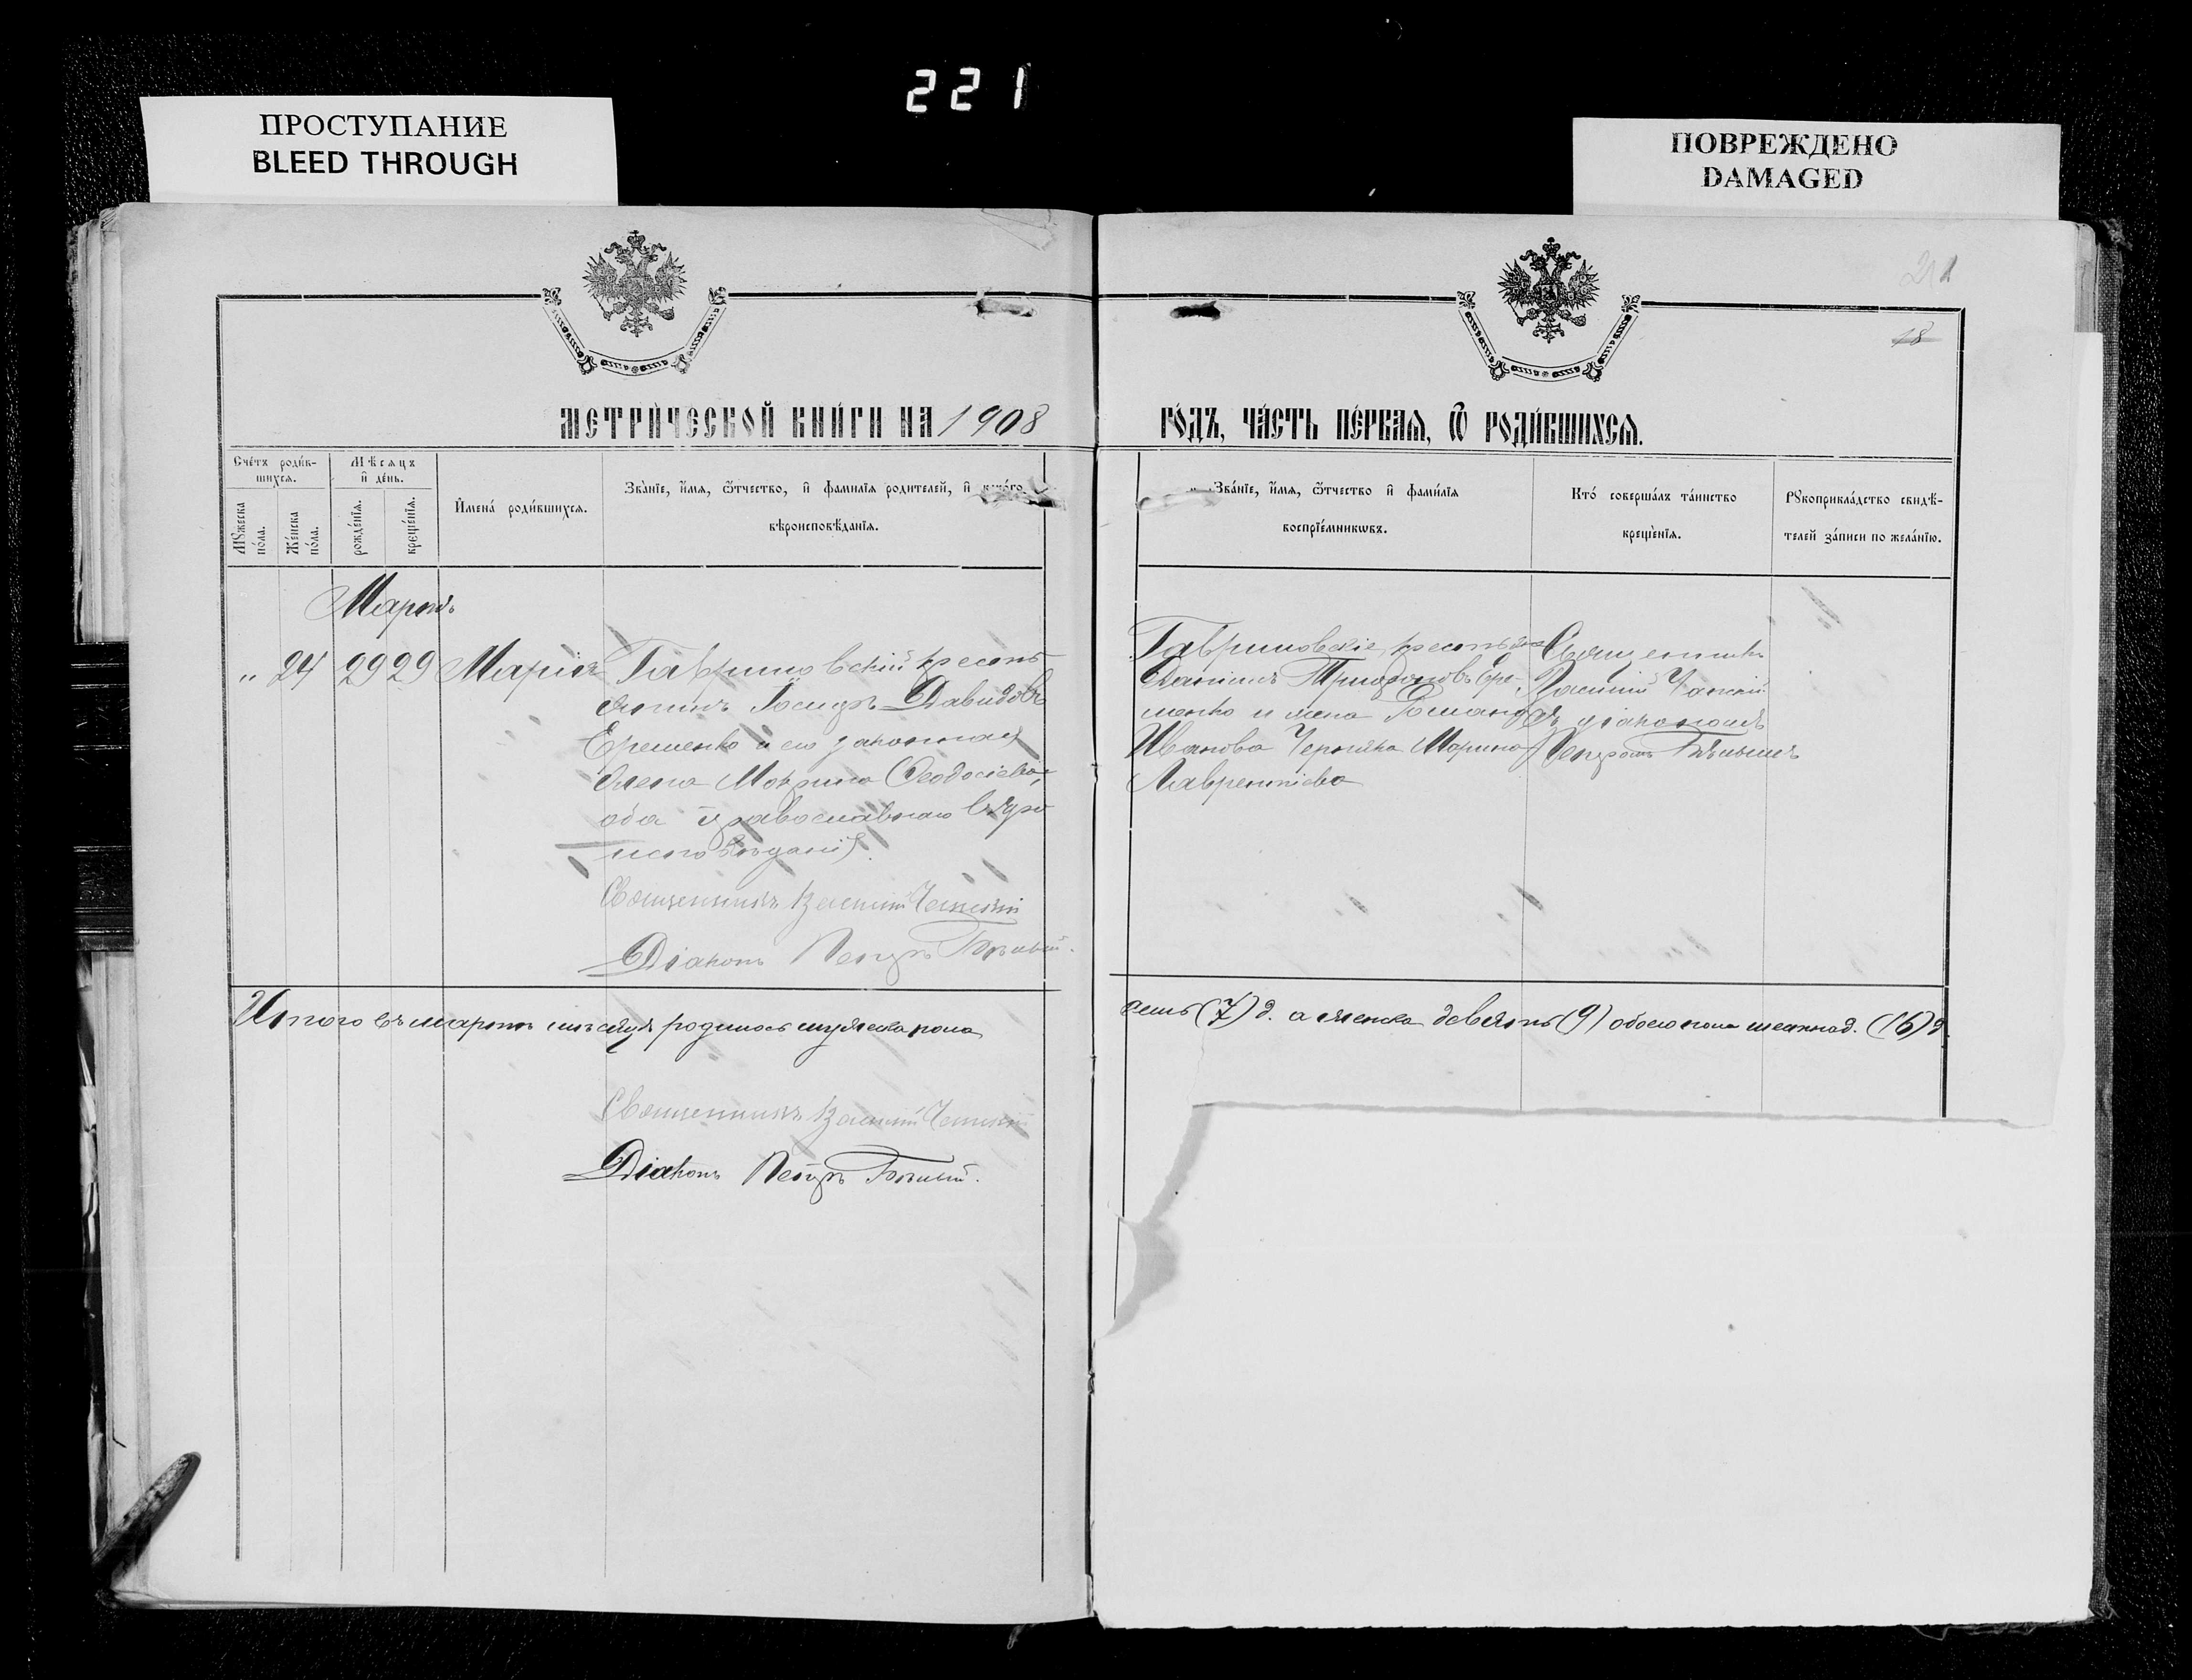 221
ПРОСТУПАНИЕ
BLEED THROUGH
ПОВРЕЖДЕНО
DAMAGED
18
МЕТРИ́ЧЕСКОЙ КНИ́ГИ НА 1908
ГО́ДЪ, ЧА́СТЬ ПЕ́РВАЯ, Ѿ РОДИ́ВШИХСЯ.
Сче́тъ роди́в-
шихся.
Мꙋ́жеска по́ла.
Же́нска по́ла.
Мѣсяцъ и де́нь.
рожде́нїя.
креще́нїя.
Имена́ роди́вшихся.
Зва́нїе, и́мя, ѻ́тчество, и фамилїя родителей, и
вѣроисповѣданїя.
Зва́нїе, и́мя, ѻ́тчество и фами́лїя
воспрїе́мникѡвъ.
Кто́ соверша́лъ та́инство
креще́нїя.
Рꙋкоприкла́дство свидѣ́-
телей за́писи по жела́нїю.
Мартъ
" 24 29 29 Марія
Гавриловскій кресть-
янинъ Іосифъ Давидовъ
Еременко и его законная
жена Мокрина Ѳеодосіева,
оба православнаго вѣро-
исповѣданія.
Священникъ Василій
Діаконъ Петръ Бѣлый.
Гавриловскіе крестьяне
Даніилъ Трифоновъ Ере-
менко и жена Романа
Иванова Черняка Марина
Лаврентіева
Священникъ
Василій
съ діакономъ
Петромъ Бѣлымъ
Итого въ мартѣ мѣсяцѣ родилось мужеска пола
семь (7) д. а женска девять (9) обоего пола шестнад. (16) д.
Священникъ Василій
Діаконъ Петръ Бѣлый.